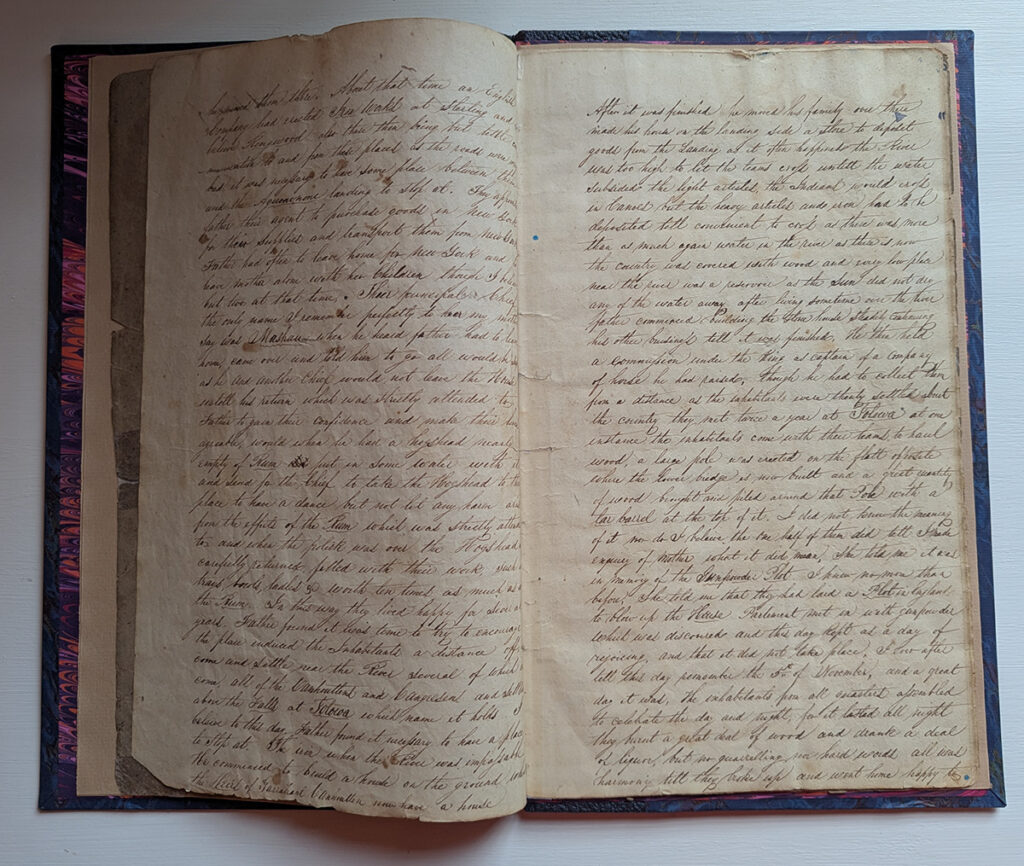 them there. About that time an English
Company had erected Iron Works at Sterling and
below Ringwood also there then being but little
to and from these places as the roads were
bad it was necessary to have some place between them
and the Aquacanonc landing to stop at. They
father their agent to purchase goods in New York
for their Supplies and transport them from
Father had often to leave home for New York and
leave mother alone with her Children though I believe
but two at that time. Their principal Chief
the only name I remember perfectly to hear my
say was when he heard father had to leave
home, came over and told him to go all would be
as he and another Chief would not leave the House
untill his return which was strictly attended to
Father to gain their confidence and make them
agreeably would when he had a hogshead nearly
empty of Rum put in some water with it
and send for the Chief to take the Hogshead to the
place to have a dance but not let any harm
from the effects of the Rum which was strictly
to and when the frolick was over the Hogshead
carefully returned, filled with their work, such
trays bowls, ladles & worth ten times as much as
the Rum. In this way they lived happy for
years. Father found it was time to try to encourage
the place induced the Inhabitants a distance off
come and settle near the River several of which
come, all of the and and
above the Falls at Totowa which name it holds I
believe to this day. Father found it necessary to have a place
to stop at. when the River was impassable
He commenced to build a house on the ground
the Heirs of now have a house
After it was finished he moved his family over there
made his house on the landing side a Store to deposite
goods from the Landing as it often happened the River
was too high to let the teams cross untill the water
Subsided the light articles the Indians would cross
in Canoes but the heavy articles and iron had to be
deposited till convenient to cross as there was more
than as much again water in the river as there is now
the country was covered with wood and every low place
near the river was a reservoir as the Sun did not dry
any of the water away after living sometime over the river
father commenced building the Stone house Still continuing
his other business till it was finished. He then held
a commission under the King as captain of a Company
of horse he had raised, though he had to collect them
from a distance as the inhabitants were thinly settled about
the country they met twice a year at Totowa at one
instance the inhabitants come with their teams to haul
wood, a large pole was erected on the flatt opposite
where the lower bridge is now built and a great quantity
of wood brought and piled around that Pole with a
tar barrel at the top of it. I did not know the meaning
of it nor do I believe the one half of them did till I made
enquiry of Mother what it did mean, She told me it was
in memory of the Gunpowder Plot I knew no more than
before, She told me that they had laid a Plot in England
to blow up the House Parliament met in with gunpowder
which was discovered and this day kept as a day of
rejoicing, and that it did not take place, I ever after
till this day remember the 5th of November, and a great
day it was, the inhabitants from all quarters assembled
to celebrate the day and night, for it lasted all night
they burnt a great deal of wood and drank a deal
of liquor, but no quarrelling nor hard words all was
harmony till they broke up and went home happy to